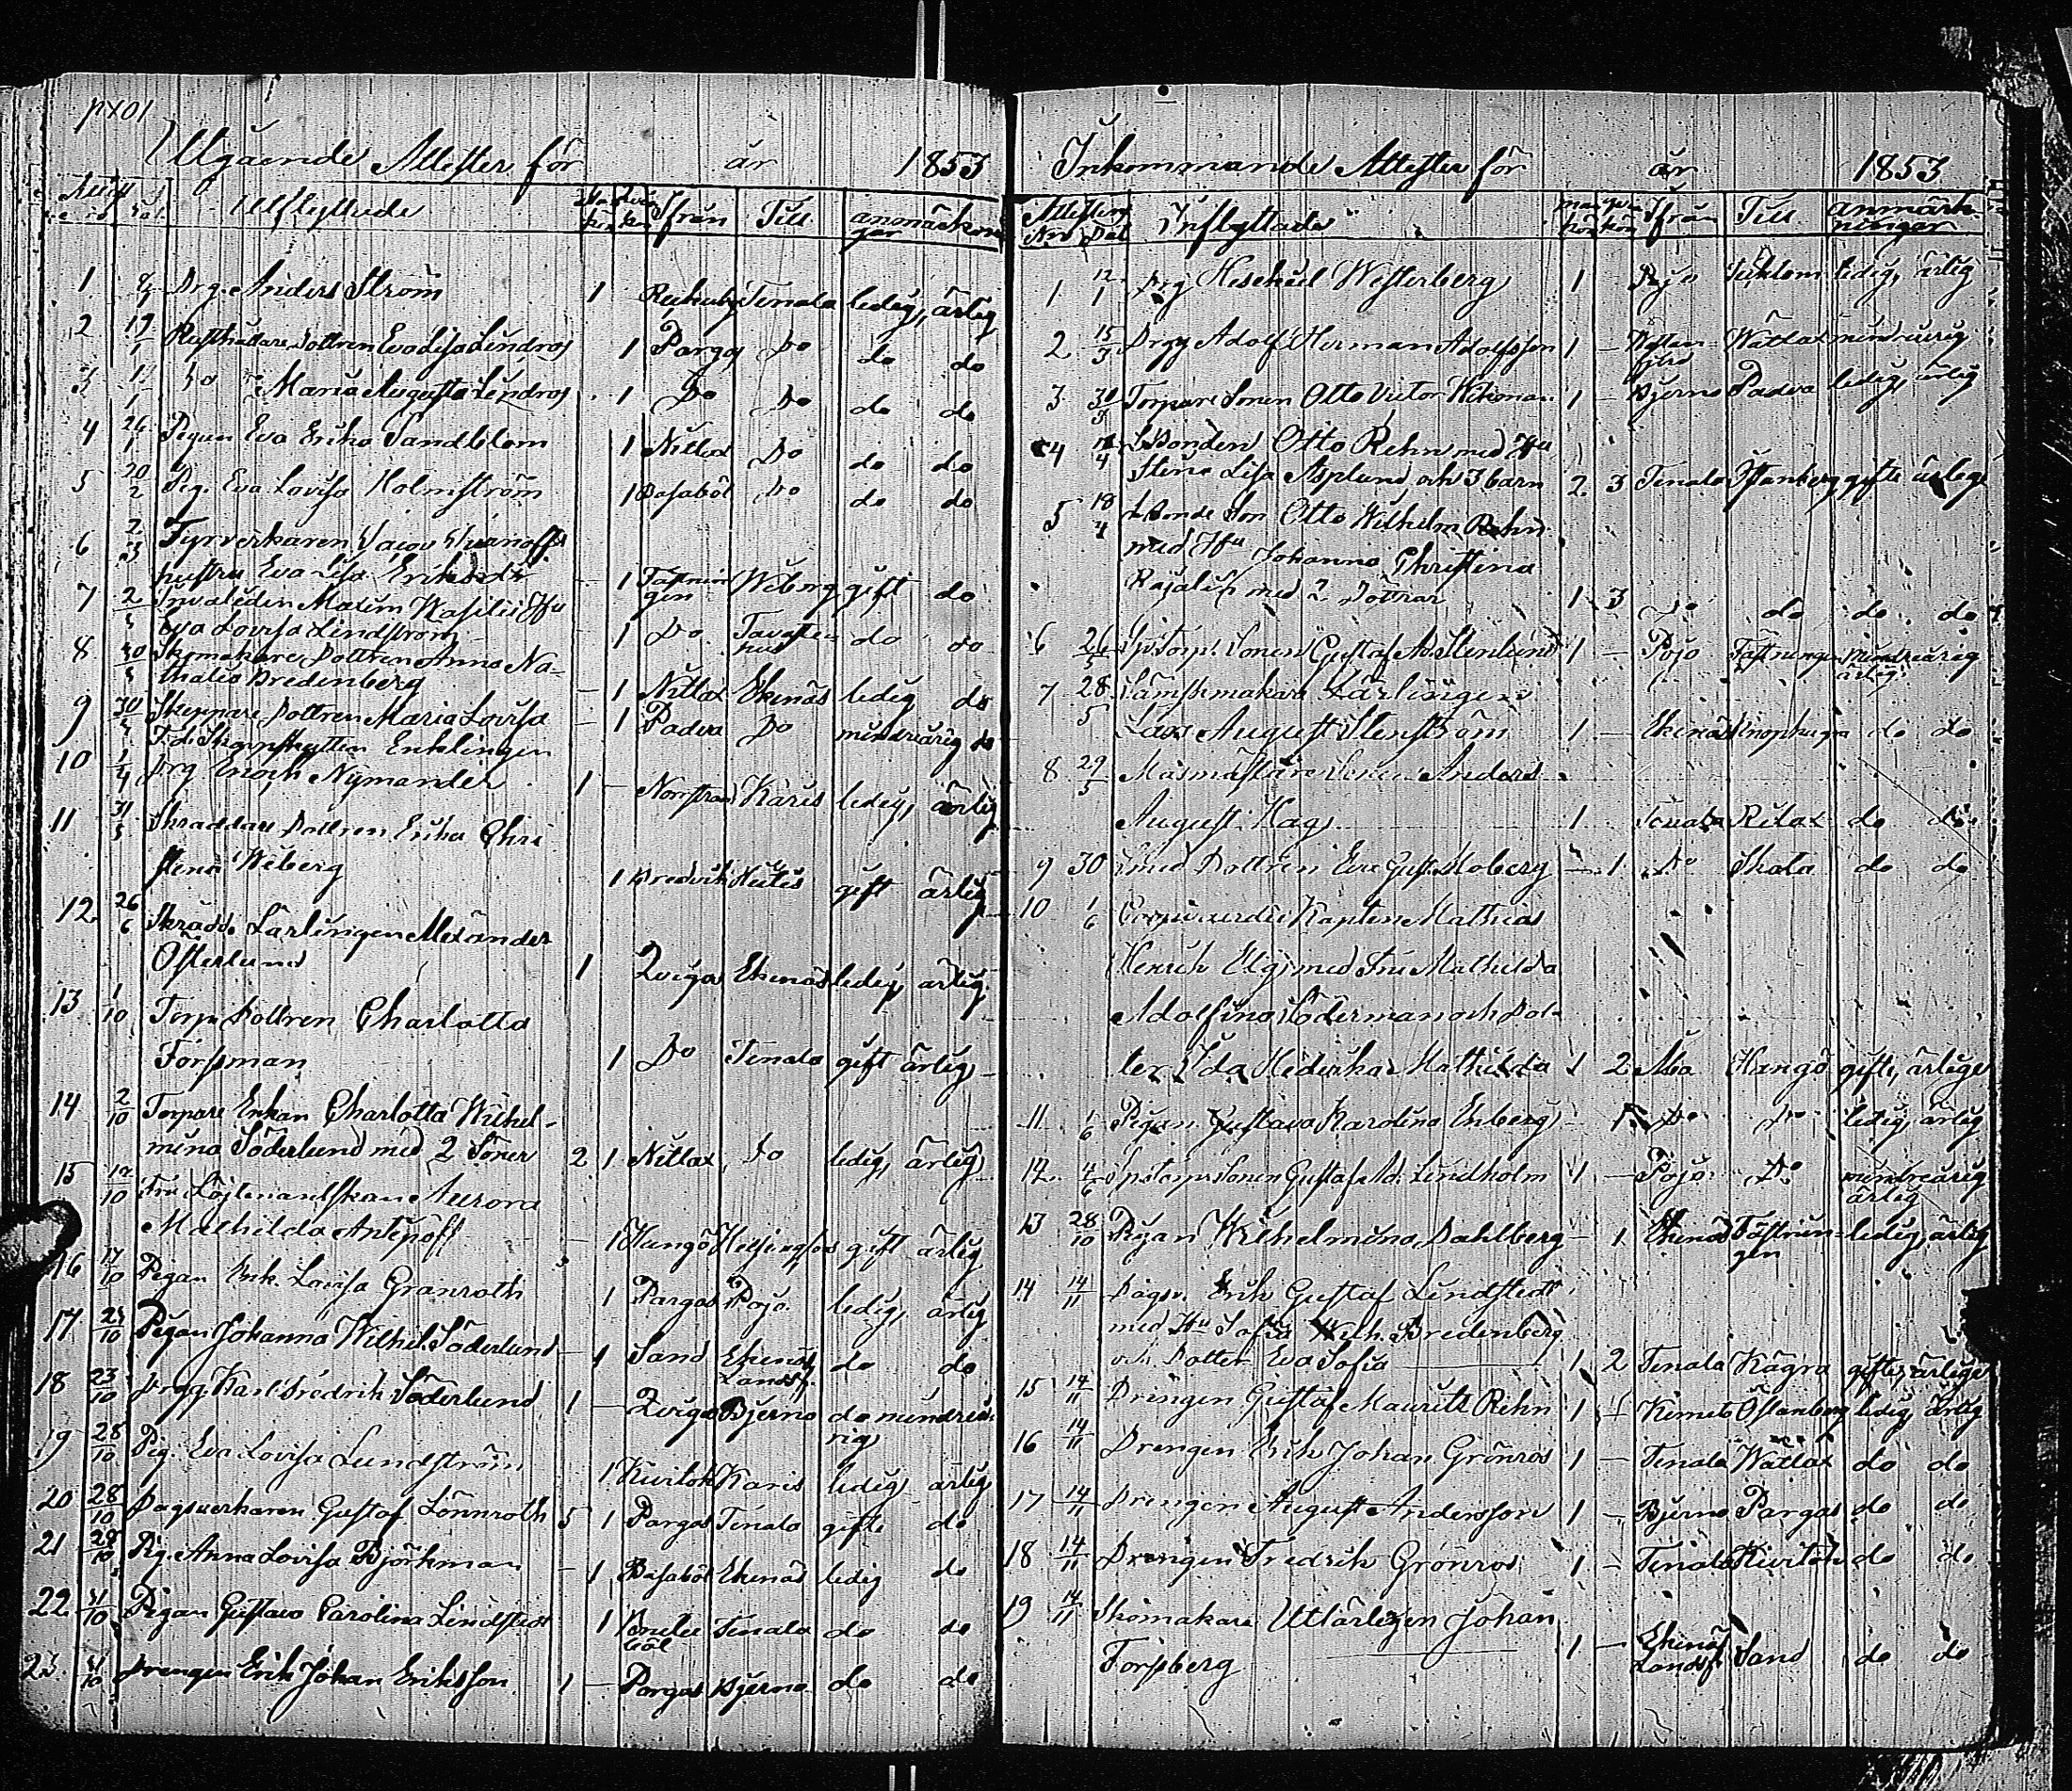 Utgående Attester för år 1853
Utflyttade Ifrån Till anmärkningar
1 Drg. Anders Ström 1 Tenala ledig, ärlig
2 19/1 Rusthållare Dottren Eva Lisa Lindros 1 Pargas Do do do
3 Do Maria Augusta Lindros 1 Do Do do do
4 26/1 Pigan Eva Erika Sandblom 1 Nitlax Do do do
5 20/2 Pig. Eva Lovisa Holmström 1 Basaböl Do do do
6 2/3 Fyrverkaren Iwanoffs
hustru Eva Lisa Eriksdr 1 Fästnin
gen Wiborg gift do
7 2/3 Invaliden Maxim Wasilii Hu
Eva Lovisa Lindström 1 Do Tavaste
hus do do
8 30/3 Skomakare Dottren Anna Na-
thalia Bredenberg 1 Nitlax Ekenäs ledig do
9 30/3 Skeppare Dottren Maria Lovisa 1 Padva Do mindreårig do
10 1/4 Drg Enoch Nymander 1 Norrstrand Karis ledig, ärlig
11 31/5 Skräddare Dottren Erika Chri
stina Wiberg 1 Bredvik gift ärlig
12 26/6 Skrädd. Lärlingen Alexander
Österlund 1 Qviga Ekenäs ledig, ärlig
13 1/10 Torp. Dottren Charlotta
Forssman 1 Do Tenala gift ärlig
14 2/10 Torpare Enkan Charlotta Wilhel-
mina Söderlund med 2 Söner 2 1 Nitlax Do ledig, ärlig
15 12/10 Fru Löjtnantskan Aurora
Mathilda Antipoff 1 Hangö Helsingfors gift ärlig
16 17/10 Pigan Erik. Lovisa Granroth 1 Pargas Pojo ledig, ärlig
17 23/10 Pigan Johanna Wilhel. Söderlund 1 Sand Ekenäs
Landsf. do do
18 23/10 Drgg. Karl Fredrik Söderlund 1 Qviga Bjerno do mindreå
rig
19 28/10 Pig. Eva Lovisa Lundström 1 Kivitok Karis ledig ärlig
20 28/10 Dagsverkaren Gustaf Lönnroth 5 1 Pargas Tenala gifte do
21 28/10 Pig. Anna Lovisa Björkman 1 Basaböl Ekenäs ledig do
22 31/10 Pigan Gustava Carolina Lindstedt 1 Tenala do do
23 31/10 Drengen Erik Johan Eriksson 1 Pargas Bjerno do do
Inkommande Attester för år 1853
Attestens Inflyttade Ifrån Till anmärk-
ningar
1 12/1 Drg Hesekiel Westerberg 1 Pojo ledig, ärlig
2 15/3 Drgg Adolf Herman Adolfsson 1 Wätlax mindreårig
3 30/3 Torpare Sonen Otto Victor Wikman 1 Bjerno Padva ledig, ärlig
4 Bonden Otto Rehn med Hu
Stina Lisa Asplund och 3 barn 2 3 Tenala Östanberg gifte ärlige
5 18/4 Bonde Son Otto Wilhelm Rehn
med Hu Johanna Christina
med 2 Döttrar 1 3 Do do do do
6 26/5 Torp. Sonen Gustaf Ad. Stenlund 1 Pojo Fästningen mindreårig
ärlig
7 28/5 Sämskmakare Lärlingen
Lars August Stenström 1 Ekenäs do do
8 29/5 Masmästare Sonen Anders
August Hag 1 Tenala Rilax do do
9 30 Smed Dottren Eva Gust. Moberg 1 Do Skata do do
10 1/6 Kapten Mathias
Henrik Elg med Fru Mathilda
Adolfina Söderman och Dot-
ter Ida Hedvika Mathilda 1 2 Åbo Hangö gifte, ärlige
11 1/6 Pigan Gustava Karolina Ekberg 1 Do Do ledig, ärlig
12 4/6 Sonen Gustaf Ad. Lindholm 1 Pojo Do mindreårig
ärlig
13 28/10 Pigan Wilhelmina Dahlberg 1 Ekenäs Fästnin-
gen ledig, ärlig
14 14/11 Dagsv. Erik Gustaf Lindstedt
med Hu Sofia Wilh. Bredenberg
och Dotter Eva Sofia 1 2 Tenala Kägra gifte, ärlige
15 14/11 Drengen Gustaf Mauritz Rehn 1 Kimito Östanberg ledig, ärlig
16 14/11 Drengen Erik Johan Grönros 1 Tenala Wätlax do do
17 14/11 Drengen August Andersson 1 Bjerno Pargas do do
18 14/11 Drengen Fredrik Grönros 1 Tenala Kivitok do do
19 14/11 Skomakare Utlärlingen Johan
Forssberg 1 Ekenäs
Landsf. Sand do do